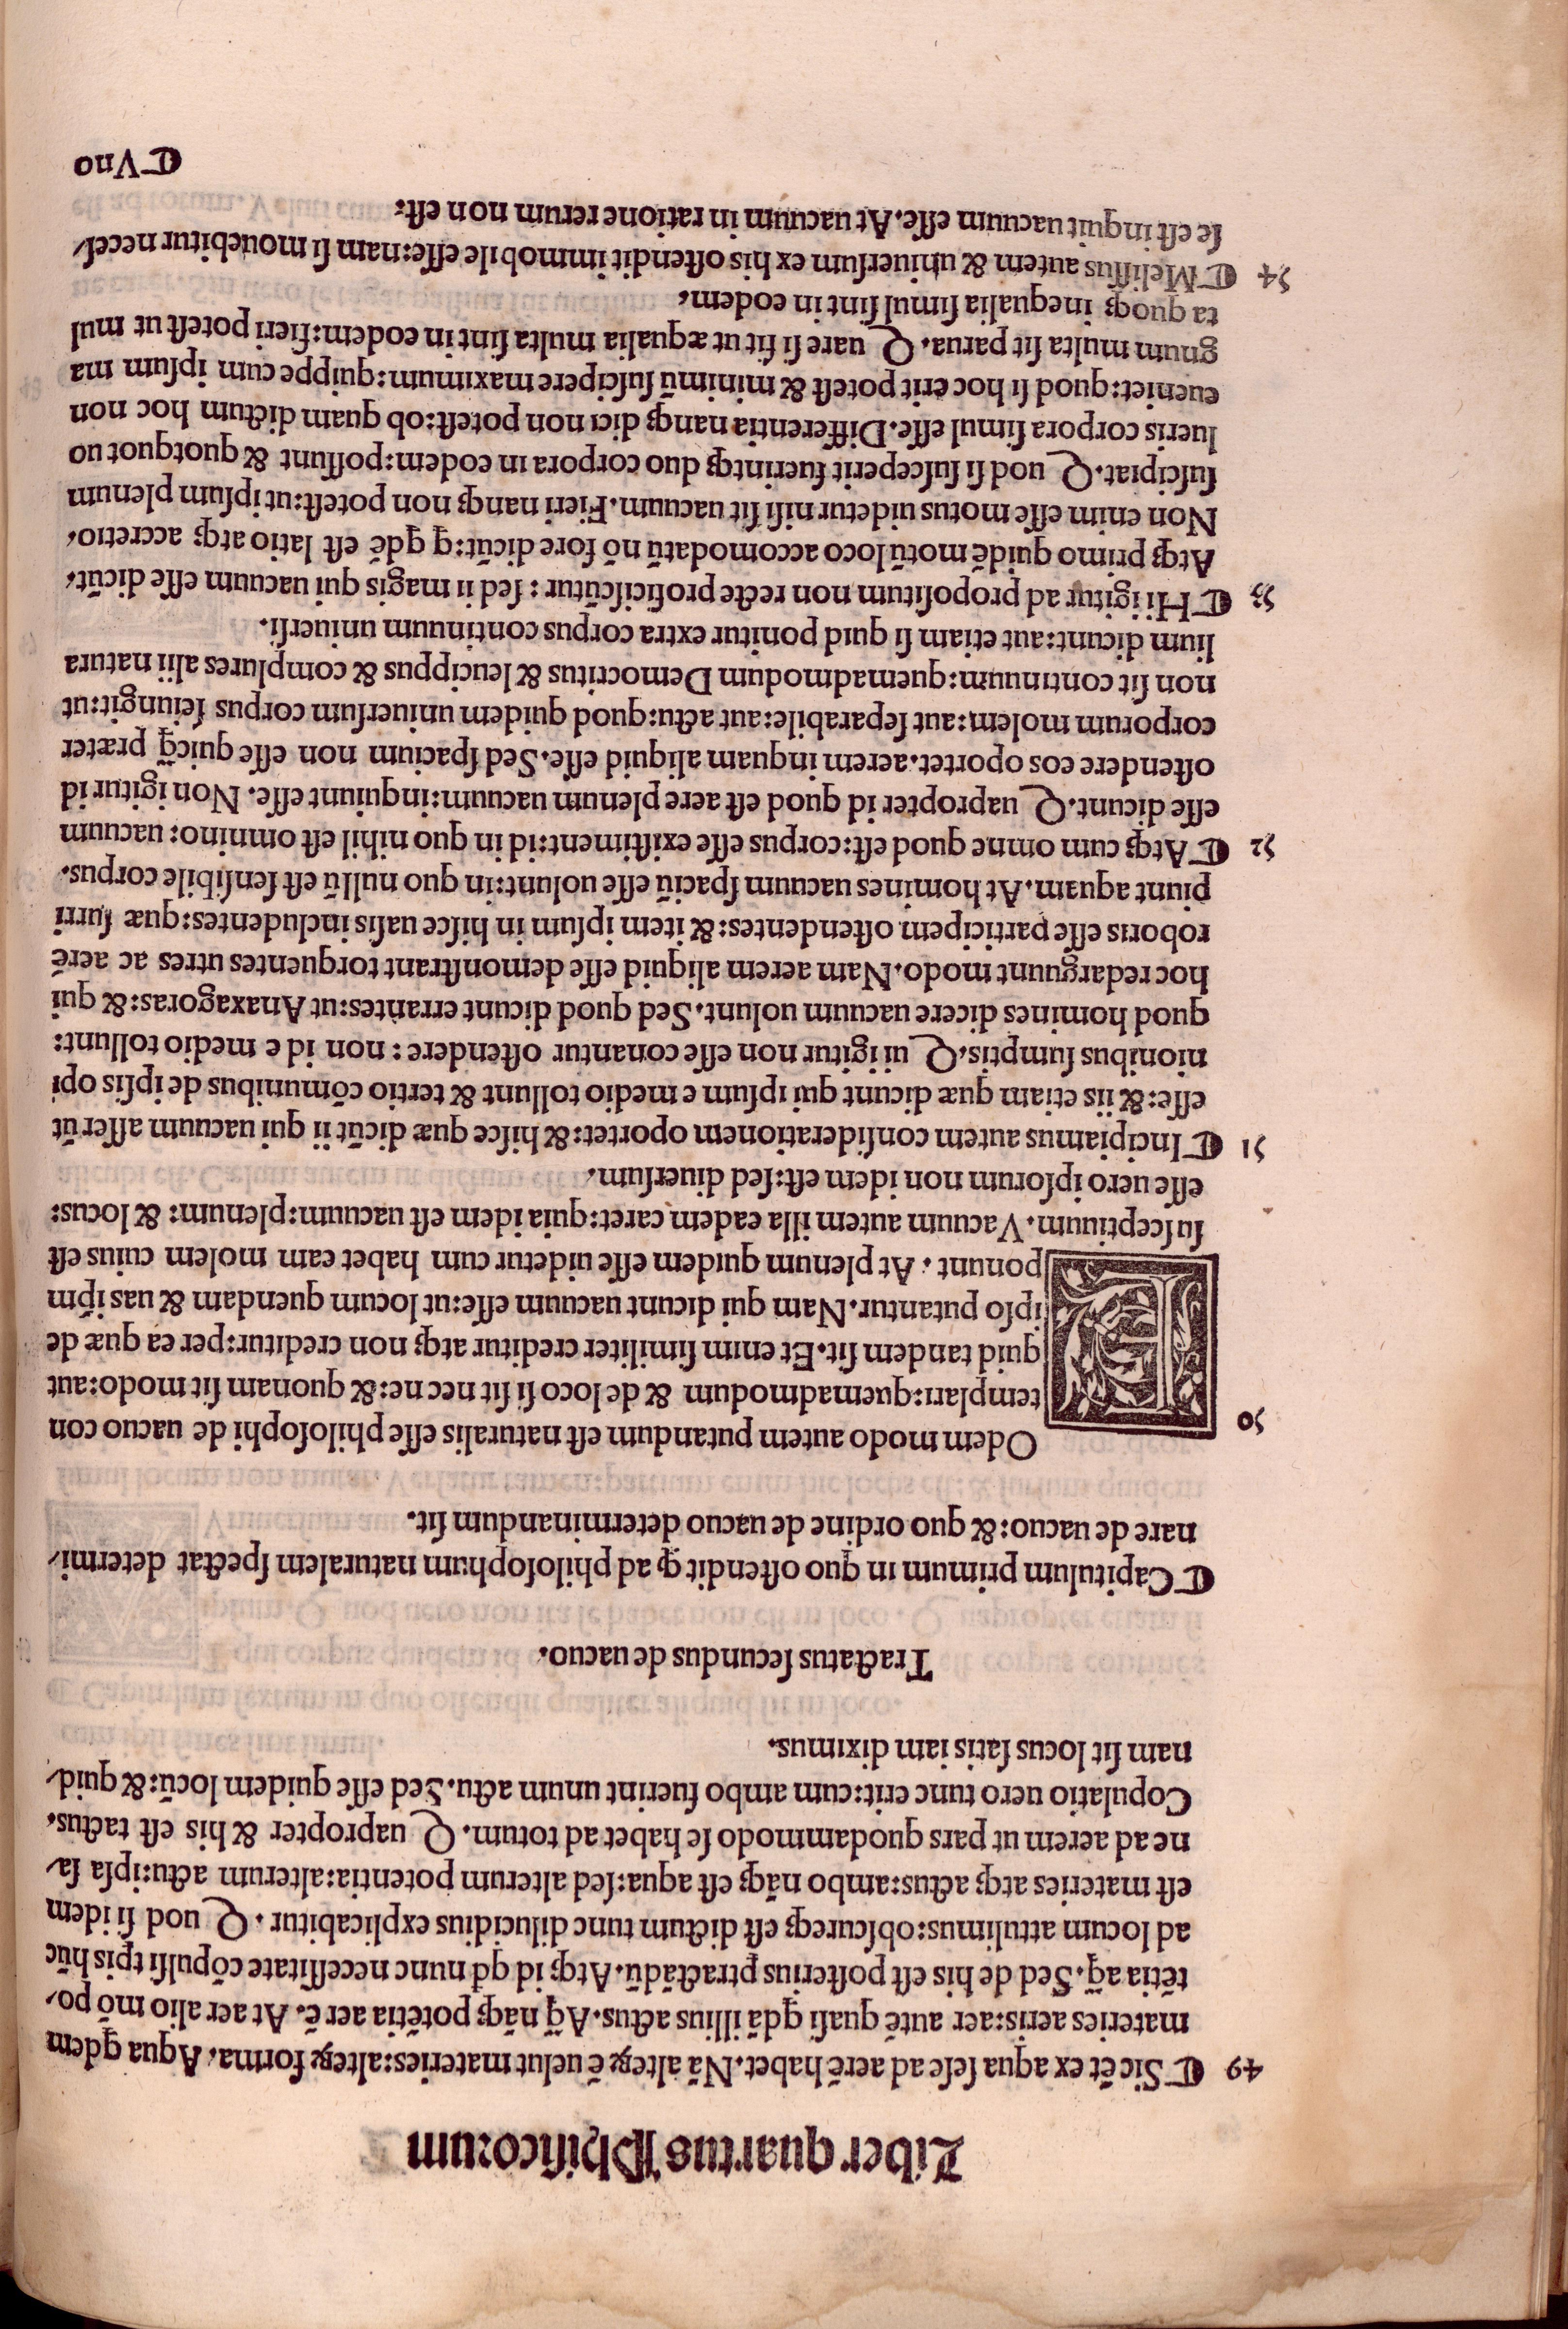 Liber quartus Phiſicorum
49 ¶ Sic êt ex aqua ſeſe ad aerē habet. Nā alteꝝ ē uelut materies: alteꝝ forma. Aqua qdem
materies aeris: aer autē quaſi qdā illius actus. Aq̃ nāq; potētia aer ē. At aer alio mō po-
tētia aq̃. Sed de his eſt poſterius ꝑtractādū. Atq; id qd nunc neceſſitate cōpulſi tp̄is hūc
ad locum attulimus: obſcureq; eſt dictum tunc dilucidius explicabitur. Quod ſi idem
eſt materies atq; actus: ambo nāq; eſt aqua: ſed alterum potentia: alterum actu: ipſa ſa-
ne ad aerem ut pars quodammodo ſe habet ad totum. Quapropter & his eſt tactus.
Copulatio uero tunc erit: cum ambo fuerint unum actu. Sed eſſe quidem locū: & quid-
nam ſit locus ſatis iam diximus.
Tractatus ſecundus de uacuo.
¶ Capitulum primum in quo oſtendit q; ad philoſophum naturalem ſpectat determi-
nare de uacuo: & quo ordine de uacuo determinandum ſit.
50 EOdem modo autem putandum eſt naturalis eſſe philoſophi de uacuo con
templari: quemadmodum & de loco ſi ſit nec ne: & quonam ſit modo: aut
quid tandem ſit. Et enim ſimiliter creditur atq; non creditur: per ea quæ de
ipſo putantur. Nam qui dicunt uacuum eſſe: ut locum quendam & uas ip̄m
ponunt. At plenum quidem eſſe uidetur cum habet eam molem cuius eſt
ſuſceptiuum. Vacuum autem illa eadem caret: quia idem eſt uacuum: plenum: & locus:
eſſe uero ipſorum non idem eſt: ſed diuerſum.
51 ¶ Incipiamus autem conſiderationem oportet: & hiſce quæ dicūt ii qui uacuum aſſerūt
eſſe: & iis etiam quæ dicunt qui ipſum e medio tollunt & tertio cōmunibus de ipſis opi
nionibus ſumptis. Qui igitur non eſſe conantur oſtendere: non id e medio tollunt:
quod homines dicere uacuum uolunt. Sed quod dicunt errantes: ut Anaxagoras: & qui
hoc redarguunt modo. Nam aerem aliquid eſſe demonſtrant torquentes utres ac aerē
roboris eſſe participem oſtendentes: & item ipſum in hiſce uaſis includentes: quæ ſurri
piunt aquam. At homines uacuum ſpaciū eſſe uolunt: in quo nullū eſt ſenſibile corpus.
52 ¶ Atq; cum omne quod eſt: corpus eſſe exiſtiment: id in quo nihil eſt omnino: uacuum
eſſe dicunt. Quapropter id quod eſt aere plenum uacuum: inquiunt eſſe. Non igitur id
oſtendere eos oportet. aerem inquam aliquid eſſe. Sed ſpacium non eſſe quicq̃ præter
corporum molem: aut ſeparabile: aut actu: quod quidem uniuerſum corpus ſeiungit: ut
non ſit continuum: quemadmodum Democritus & leucippus & complures alii natura
lium dicunt: aut etiam ſi quid ponitur extra corpus continuum uniuerſi.
53 ¶ Hi igitur ad propoſitum non recte proficiſcūtur: ſed ii magis qui uacuum eſſe dicūt.
Atq; primo quidē motū loco accomodatū nō fore dicūt: q qdē eſt latio atq; accretio.
Non enim eſſe motus uidetur niſi ſit uacuum. Fieri nanq; non poteſt: ut ipſum plenum
ſuſcipiat. Quod ſi ſuſceperit fuerintq; duo corpora in eodem: poſſunt & quotquot uo
lueris corpora ſimul eſſe. Differentia nanq; dici non poteſt: ob quam dictum hoc non
eueniet: quod ſi hoc erit poteſt & minimū ſuſcipere maximum: quippe cum ipſum ma
gnum multa ſit parua. Quare ſi fit ut æqualia multa ſint in eodem: fieri poteſt ut mul
ta quoq; inequalia ſimul ſint in eodem.
54 ¶ Meliſſus autem & uniuerſum ex his oſtendit immobile eſſe: nam ſi mouebitur neceſ-
ſe eſt inquit uacuum eſſe. At uacuum in ratione rerum non eſt.
¶ Vno